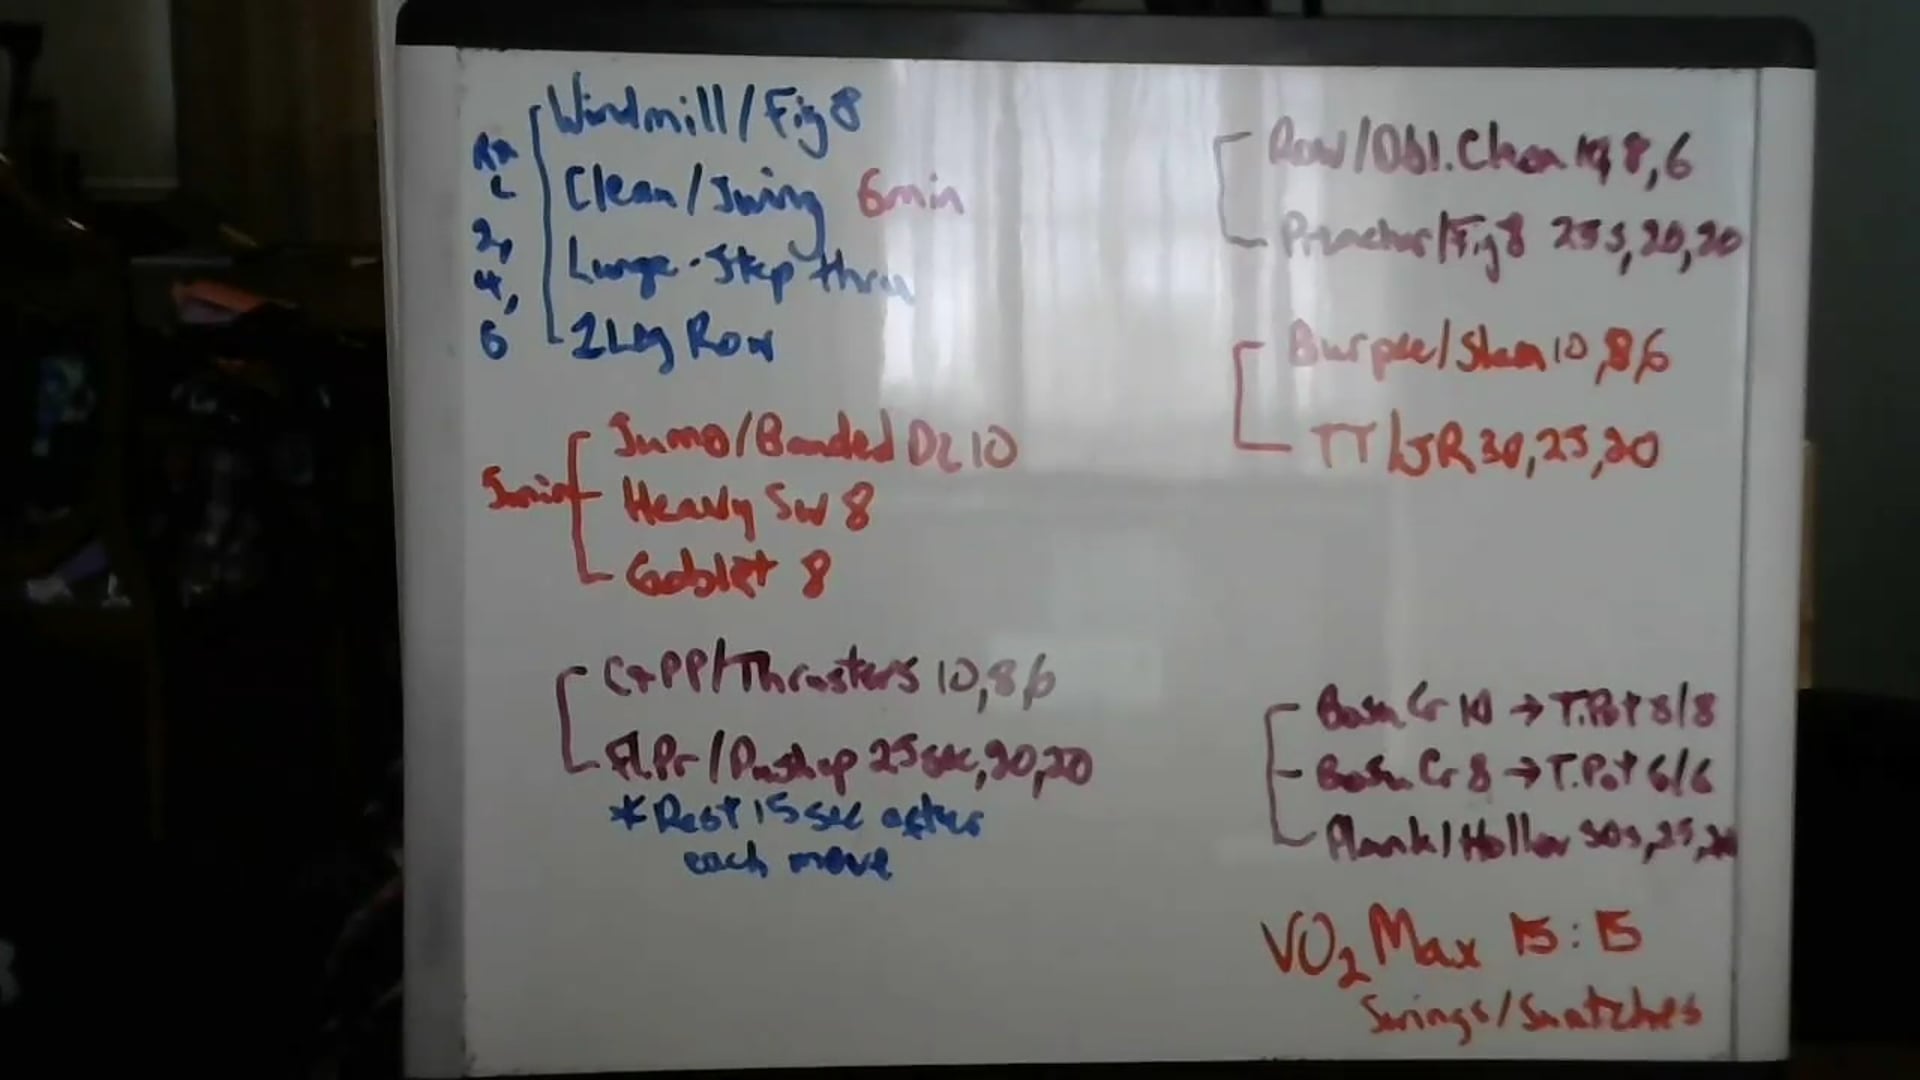 Windmill/Fig 8
R+
L
Clean/Swing 6min
2,
Lunge-Step thru
4,
6
2 Leg Row
Sumo/Banded DL 10
5min
Heavy Sw 8
Goblet 8
C+PP/Thrusters 10,8,6
Fl.Pr/Pushup 25sec,20,20
*Rest 15sec after
each move
Row/Dbl.Clean 10,8,6
/Fig 8 25s,20,20
Burpee/Slam 10,8,6
TT/JR 30,25,20
Bosu Cr 10 → T.Pot 8/8
Bosu Cr 8 → T.Pot 6/6
Plank/Hollow 30s,25,20
VO2 Max 15:15
Swings/Snatches